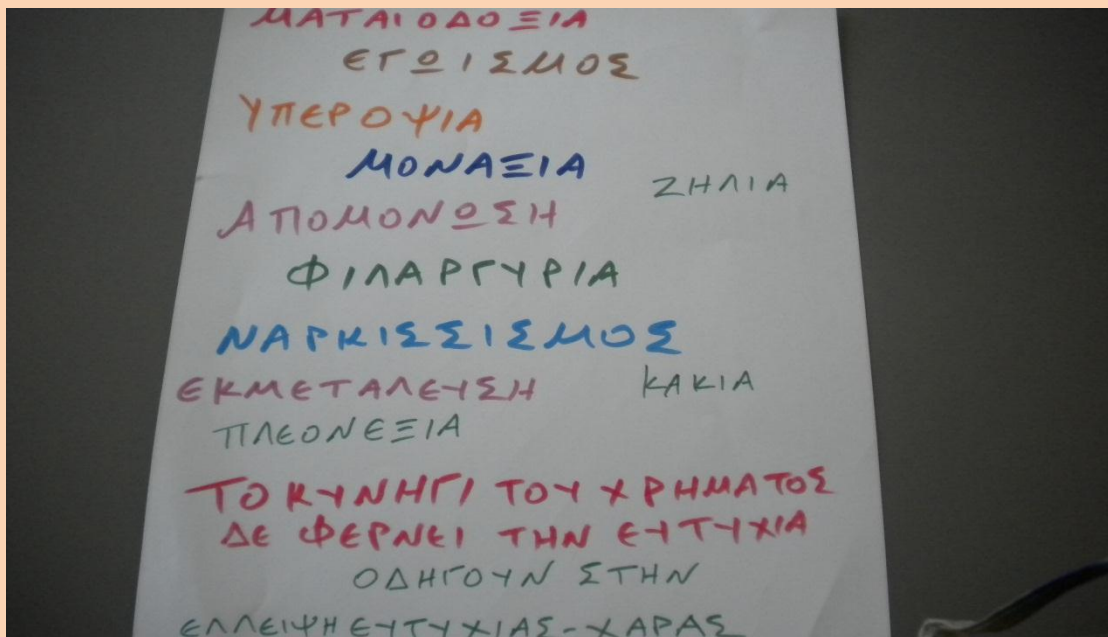 ΜΑΤΑΙΟΔΟΞΙΑ
ΕΓΩΙΣΜΟΣ
ΥΠΕΡΟΨΙΑ
ΜΟΝΑΞΙΑ
ΖΗΛΙΑ
ΑΠΟΜΟΝΩΣΗ
ΦΙΛΑΡΓΥΡΙΑ
ΝΑΡΚΙΣΣΙΣΜΟΣ
ΕΚΜΕΤΑΛΕΥΣΗ
ΚΑΚΙΑ
ΠΛΕΟΝΕΞΙΑ
ΤΟ ΚΥΝΗΓΙ ΤΟΥ ΧΡΗΜΑΤΟΣ
ΔΕ ΦΕΡΝΕΙ ΤΗΝ ΕΥΤΥΧΙΑ
ΟΔΗΓΟΥΝ ΣΤΗΝ
ΕΛΛΕΙΨΗ ΕΥΤΥΧΙΑΣ-ΧΑΡΑΣ